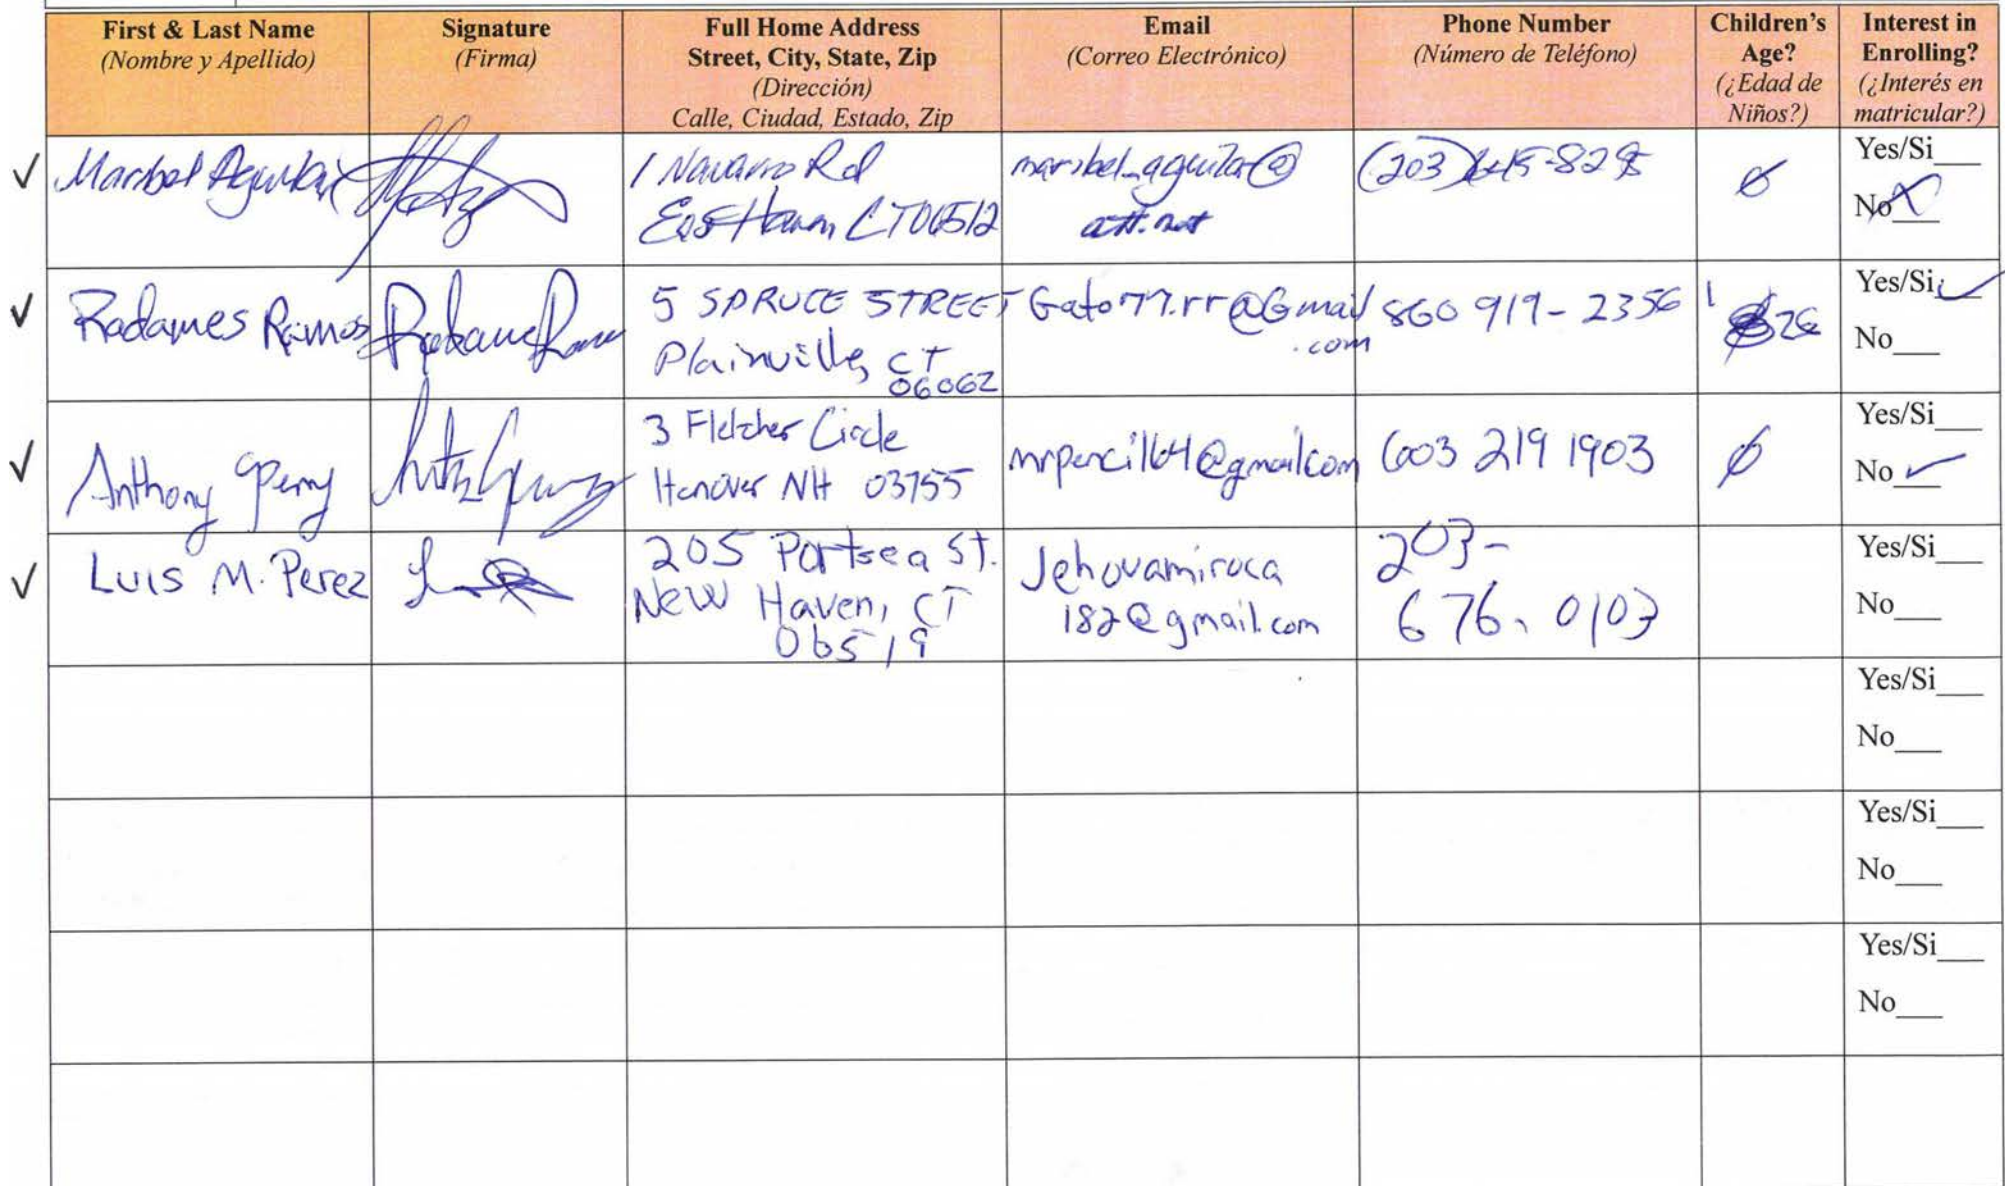 First & Last Name
(Nombre y Apellido)
Signature
(Firma)
Full Home Address
Street, City, State, Zip
(Dirección)
Calle, Ciudad, Estado, Zip
Email
(Correo Electrónico)
Phone Number
(Número de Teléfono)
Children's
Age?
(¿Edad de
Niños?)
Interest in
Enrolling?
(¿Interés en
matricular?)
✓ Maribel Aguilar
1 Navarro Rd
East Haven CT 06512
maribel_aguilar@
att.net
(203)
Ø
Yes/Si___
No X
✓ Radames Ramos
5 SPRUCE STREET
Plainville, CT
06062
Gato77.rr@Gmail
.com
860 919-2356
Yes/Si ✓
No___
✓ Anthony Perry
3 Fletcher Circle
Hanover NH 03755
mrpencil64@gmail.com
603 219 1903
Ø
Yes/Si___
No ✓
✓ Luis M. Perez
205 Portsea St.
New Haven, CT
06519
Jehovamiroca
182@gmail.com
203-
676-0103
Yes/Si___
No___
Yes/Si___
No___
Yes/Si___
No___
Yes/Si___
No___